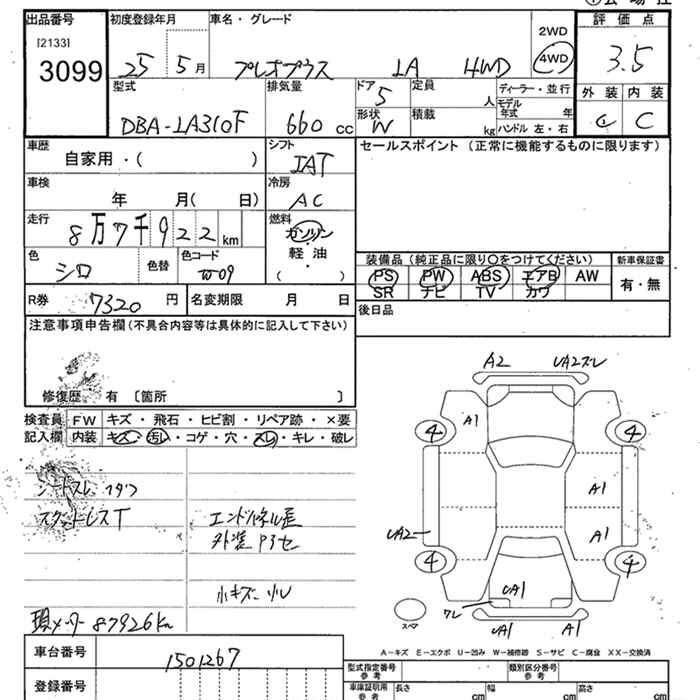 出品番号 初度登録年月 車名・グレード 2WD 評価点
[2133]
3099 25 5月 プレオプラス LA 4WD 4WD 3.5
型式 排気量 ドア 定員 ディーラー・並行 外装 内装
5 人 モデル年式 年
DBA-LA310F 660cc 形状 W 積載 kg ハンドル 左・右 C
車歴 自家用・( ) シフト IAT セールスポイント (正常に機能するものに限ります)
車検 年 月( 日) 冷房 AC
走行 8万7千922km 燃料 ガソリン
軽・油
( )
色 シロ 色替 色コード W09
装備品(純正品に限り○をつけてください) 新車保証書
PS PW ABS エアB AW 有・無
SR ナビ TV カワ
R券 7320円 名変期限 月 日 後日品
注意事項申告欄(不具合内容等は具体的に記入して下さい)
修復歴 有 〔箇所 〕
検査員 FW キズ・飛石・ヒビ割・リペア跡・×要
記入欄 内装 キズ・汚レ・コゲ・穴・スレ・キレ・破レ
シートスレ
スタッドレスT エンドパネル
外装
小キズ 小U
現メーター87926Km
A2 UA2ズレ
4 A1 4
A1
UA2 A1
4 4
UA1
ワレ
UA1 A1
スペア
A-キズ E-エクボ U-凹み W-補修跡 S-サビ C-腐食 XX-交換済
車台番号 1501267
登録番号
型式指定番号 参考 類別区分番号 参考
車庫証明用 参考 長さ cm 幅 cm 高さ cm